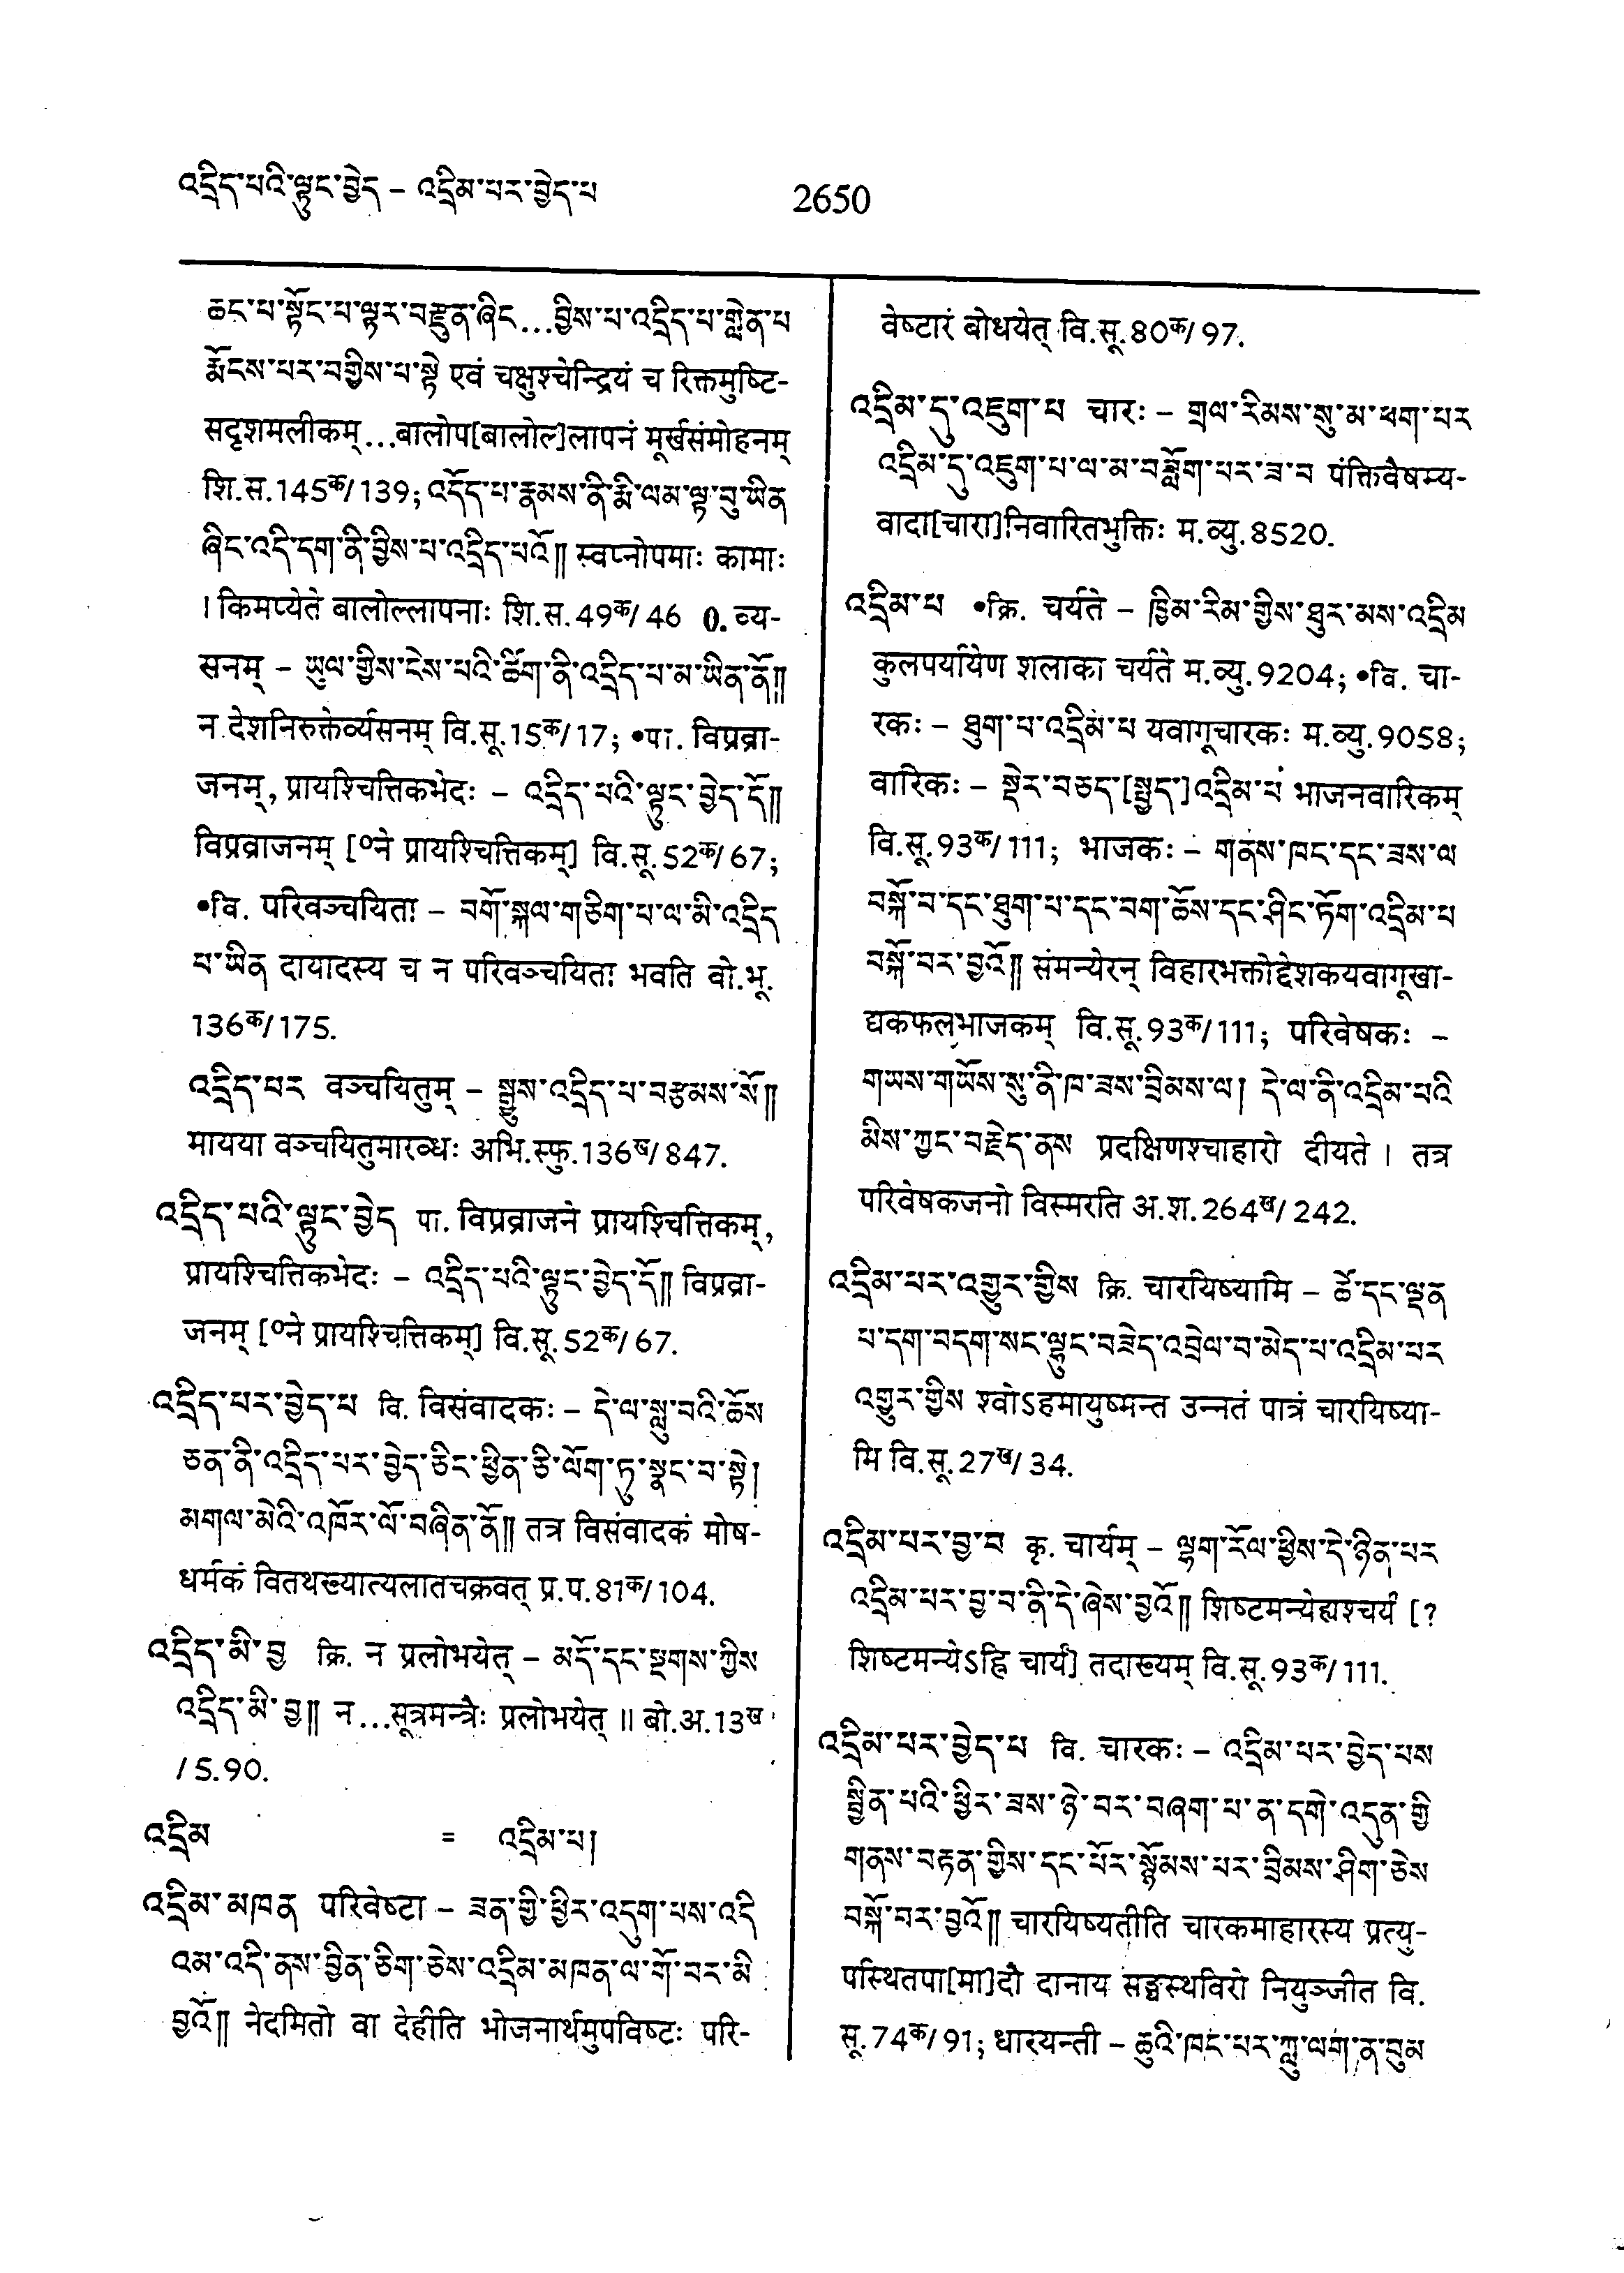 འདྲིད་པའི་ལྟུང་བྱེད – འདྲིམ་པར་བྱེད་པ
2650
ཆང་པ་སྟོང་པ་ལྟར་བརྫུན་ཞིང...བྱིས་པ་འདྲིད་པ་གླེན་པ
རྨོངས་པར་བགྱིས་པ་སྟེ एवं चक्षुश्चेन्द्रियं च रिक्तमुष्टि-
सदृशमलीकम्...बालोप[बालोल]लापनं मूर्खसंमोहनम्
शि.स.145क/139; འདོད་པ་རྣམས་ནི་རྨི་ལམ་ལྟ་བུ་ཡིན
ཞིང་འདི་དག་ནི་བྱིས་པ་འདྲིད་པའོ༎ स्वप्नोपमाः कामाः
। किमप्येते बालोल्लापनाः शि.स.49क/46 0. व्य-
सनम् – ཡུལ་གྱིས་ངེས་པའི་ཚིག་ནི་འདྲིད་པ་མ་ཡིན་ནོ༎
न देशनिरुक्तेर्व्यसनम् वि.सू.15क/17; •पा. विप्रव्रा-
जनम्, प्रायश्चित्तिकभेदः – འདྲིད་པའི་ལྟུང་བྱེད་དོ༎
विप्रव्राजनम् [०ने प्रायश्चित्तिकम्] वि.सू.52क/67;
•वि. परिवञ्चयिता – བགོ་སྐལ་གཅིག་པ་ལ་མི་འདྲིད
པ་ཡིན दायादस्य च न परिवञ्चयिता भवति बो.भू.
136क/175.
འདྲིད་པར वञ्चयितुम् – སྒྱུས་འདྲིད་པ་བརྩམས་སོ༎
मायया वञ्चयितुमारब्धः अभि.स्फु.136ख/847.
འདྲིད་པའི་ལྟུང་བྱེད पा. विप्रव्राजने प्रायश्चित्तिकम्,
प्रायश्चित्तिकभेदः – འདྲིད་པའི་ལྟུང་བྱེད་དོ༎ विप्रव्रा-
जनम् [०ने प्रायश्चित्तिकम्] वि.सू.52क/67.
འདྲིད་པར་བྱེད་པ वि. विसंवादकः – དེ་ལ་སླུ་བའི་ཆོས
ཅན་ནི་འདྲིད་པར་བྱེད་ཅིང་ཕྱིན་ཅི་ལོག་ཏུ་སྣང་བ་སྟེ།
མགལ་མེའི་འཁོར་ལོ་བཞིན་ནོ༎ तत्र विसंवादकं मोष-
धर्मकं वितथख्यात्यलातचक्रवत् प्र.प.81क/104.
འདྲིད་མི་བྱ क्रि. न प्रलोभयेत् – མདོ་དང་སྔགས་ཀྱིས
འདྲིད་མི་བྱ༎ न...सूत्रमन्त्रैः प्रलोभयेत् ॥ बो.अ.13ख
/5.90.
འདྲིམ = འདྲིམ་པ།
འདྲིམ་མཁན परिवेष्टा – ཟན་གྱི་ཕྱིར་འདུག་པས་འདི
འམ་འདི་ནས་བྱིན་ཅིག་ཅེས་འདྲིམ་མཁན་ལ་གོ་བར་མི
བྱའོ༎ नेदमितो वा देहीति भोजनार्थमुपविष्टः परि-
वेष्टारं बोधयेत् वि.सू.80क/97.
འདྲིམ་དུ་འཇུག་པ चारः – གྲལ་རིམས་སུ་མ་ཕག་པར
འདྲིམ་དུ་འཇུག་པ་ལ་མ་བཟློག་པར་ཟ་བ पंक्तिवैषम्य-
वादा[चारा]निवारितभुक्तिः म.व्यु.8520.
འདྲིམ་པ •क्रि. चर्यते – ཁྱིམ་རིམ་གྱིས་ཐུར་མས་འདྲིམ
कुलपर्यायेण शलाका चर्यते म.व्यु.9204; •वि. चा-
रकः – ཐུག་པ་འདྲིམ་པ यवागूचारकः म.व्यु.9058;
वारिकः – སྡེར་བཅད་[སྤྱད་]འདྲིམ་པ भाजनवारिकम्
वि.सू.93क/111; भाजकः – གནས་ཁང་དང་ཟས་ལ
བསྐོ་བ་དང་ཐུག་པ་དང་བག་ཆོས་དང་ཤིང་ཏོག་འདྲིམ་པ
བསྐོ་བར་བྱའོ༎ संमन्येरन् विहारभक्तोद्देशकयवागूखा-
द्यकफलभाजकम् वि.सू.93क/111; परिवेषकः –
གཡས་གཡོས་སུ་ནི་ཁ་ཟས་བྲིམས་ལ། དེ་ལ་ནི་འདྲིམ་པའི
མིས་ཀྱང་བརྗེད་ནས प्रदक्षिणश्चाहारो दीयते । तत्र
परिवेषकजनो विस्मरति अ.श.264ख/242.
འདྲིམ་པར་འགྱུར་གྱིས क्रि. चारयिष्यामि – ཚེ་དང་ལྡན
པ་དག་བདག་སང་ལྷུང་བཟེད་འབྲེལ་བ་མེད་པ་འདྲིམ་པར
འགྱུར་གྱིས श्वोऽहमायुष्मन्त उन्नतं पात्रं चारयिष्या-
मि वि.सू.27ख/34.
འདྲིམ་པར་བྱ་བ कृ. चार्यम् – ལྷག་རོལ་ཕྱིས་དེ་ཉིན་པར
འདྲིམ་པར་བྱ་བ་ནི་དེ་ཞེས་བྱའོ༎ शिष्टमन्येह्यश्चर्यं [?
शिष्टमन्येऽह्नि चार्यं] तदाख्यम् वि.सू.93क/111.
འདྲིམ་པར་བྱེད་པ वि. चारकः – འདྲིམ་པར་བྱེད་པས
སྦྱིན་པའི་ཕྱིར་ཟས་ཉེ་བར་བཞག་པ་ན་དགེ་འདུན་གྱི
གནས་བརྟན་གྱིས་དང་པོར་སྙོམས་པར་བྲིམས་ཤིག་ཅེས
བསྐོ་བར་བྱའོ༎ चारयिष्यतीति चारकमाहारस्य प्रत्यु-
पस्थितपा[मा]दौ दानाय सङ्घस्थविरो नियुञ्जीत वि.
सू.74क/91; धारयन्ती – ཆུའི་ཁང་པར་ཀླུ་ལག་ན་བུམ